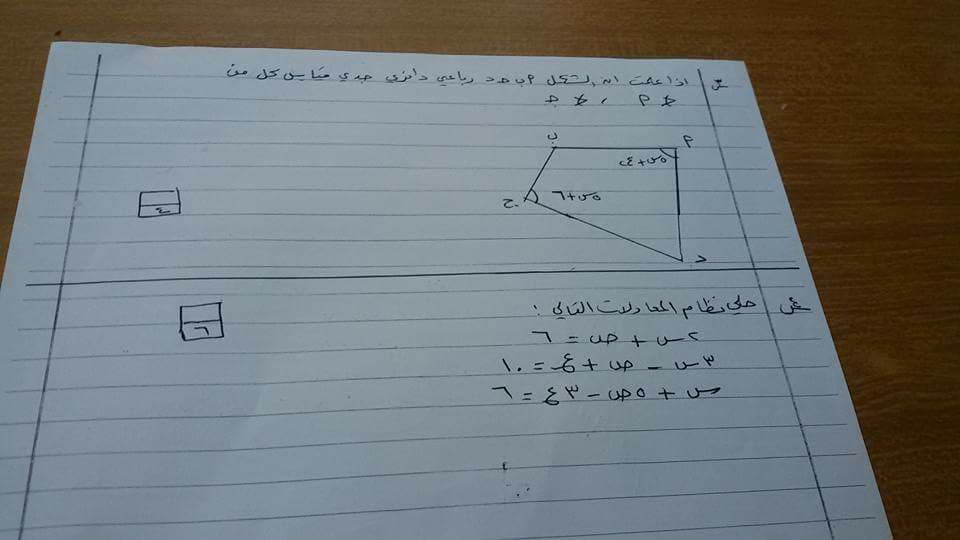 س٣ اذا علمت ان الشكل م ب جـ د رباعي دائري جدي قياس كل من
∢ م ، ∢ جـ
ب
م
٥س+٤
ج
٥س+٦
د
٤
س٤ حلي نظام المعادلات التالي :
٢س + ص = ٦
٣س - ص + ع = ١٠
س + ٥ص - ٣ع = ٦
٦